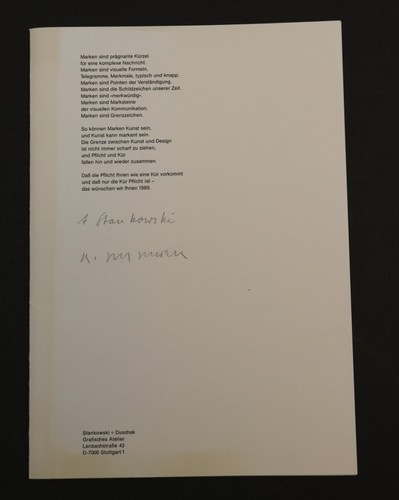 Marken sind prägnante Kürzel
für eine komplexe Nachricht.
Marken sind visuelle Formeln,
Telegramme, Merkmale, typisch und knapp.
Marken sind Pointen der Verständigung,
Marken sind die Schildzeichen unserer Zeit.
Marken sind «merkwürdig».
Marken sind Marksteine
der visuellen Kommunikation.
Marken sind Grenzzeichen.
So können Marken Kunst sein,
und Kunst kann markant sein.
Die Grenze zwischen Kunst und Design
ist nicht immer scharf zu ziehen,
und Pflicht und Kür
fallen hin und wieder zusammen.
Daß die Pflicht Ihnen wie eine Kür vorkommt
und daß nur die Kür Pflicht ist –
das wünschen wir Ihnen 1989.
Stankowski
K.
Stankowski + Duschek
Grafisches Atelier
Lenbachstraße 43
D-7000 Stuttgart 1